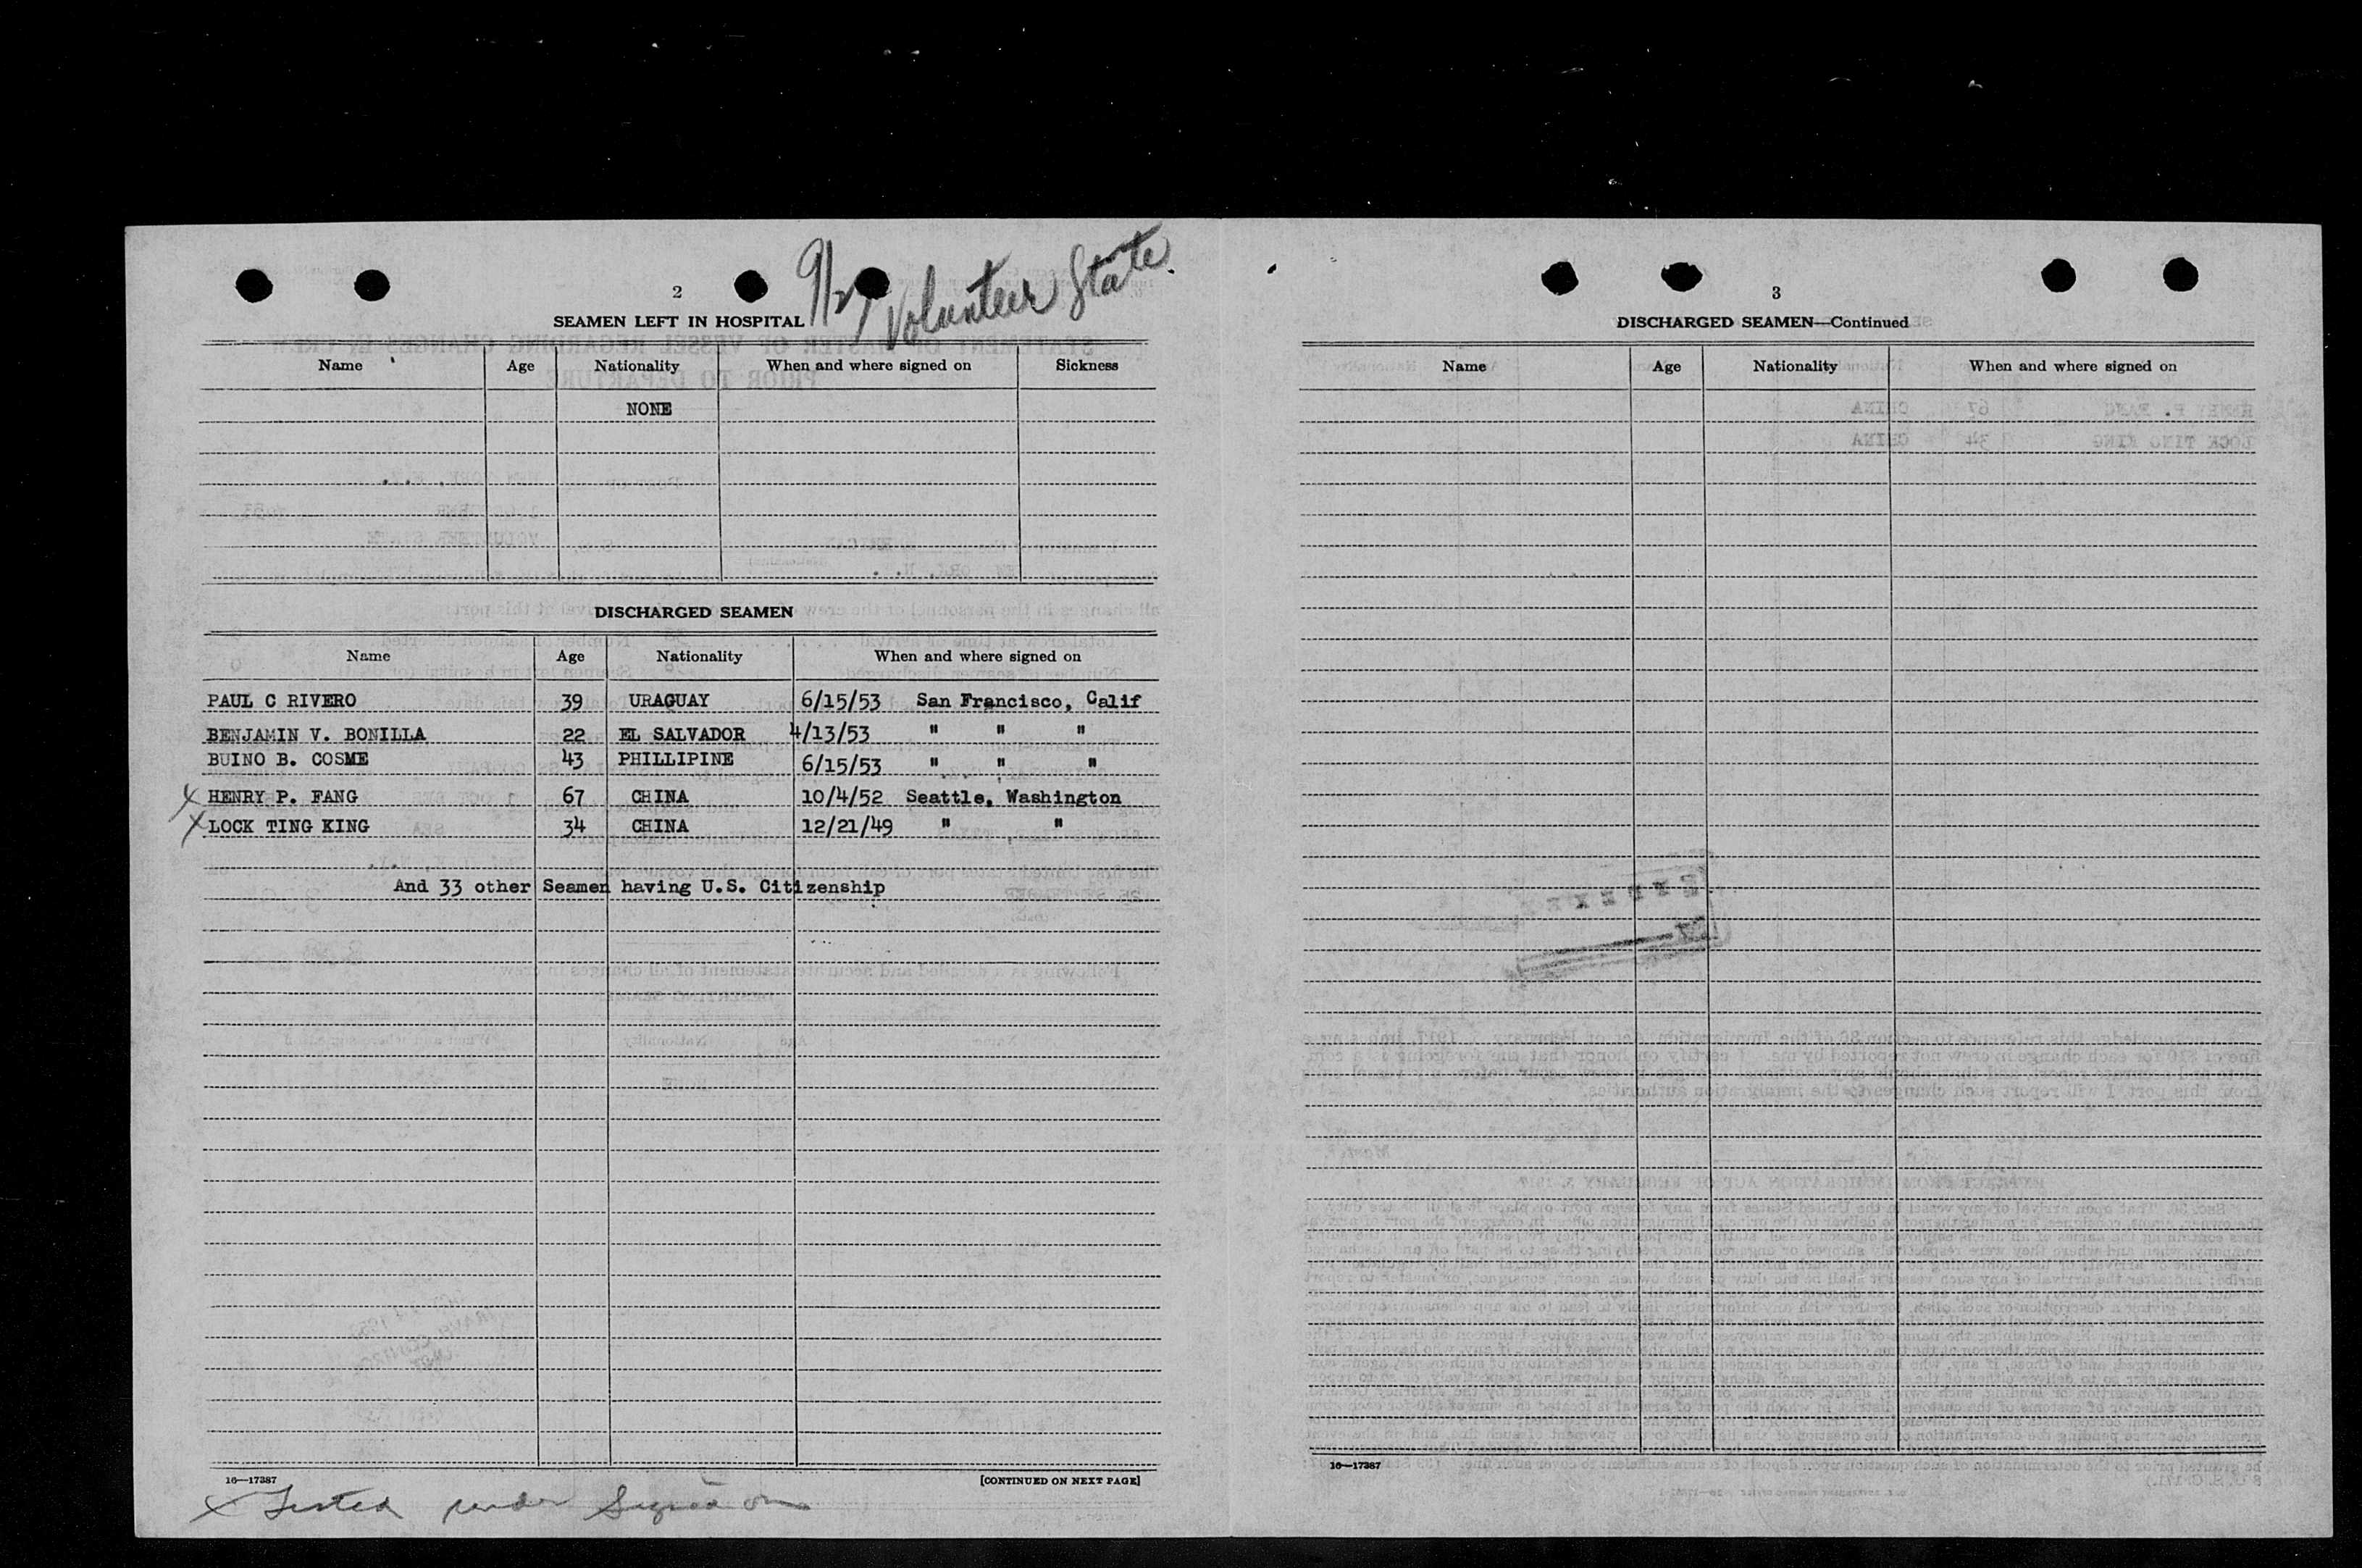 2
9/27 Volunteer State.
SEAMEN LEFT IN HOSPITAL
Name Age Nationality When and where signed on Sickness
NONE
DISCHARGED SEAMEN
Name Age Nationality When and where signed on
PAUL C RIVERO 39 URAGUAY 6/15/53 San Francisco, Calif
BENJAMIN V. BONILLA 22 EL SALVADOR 4/13/53 " " "
BUINO B. COSME 43 PHILLIPINE 6/15/53 " " "
X HENRY P. FANG 67 CHINA 10/4/52 Seattle, Washington
X LOCK TING KING 34 CHINA 12/21/49 " "
And 33 other Seamen having U.S. Citizenship
16—17387 [CONTINUED ON NEXT PAGE]
X Listed under Signed on
3
DISCHARGED SEAMEN—Continued
Name Age Nationality When and where signed on
16—17387